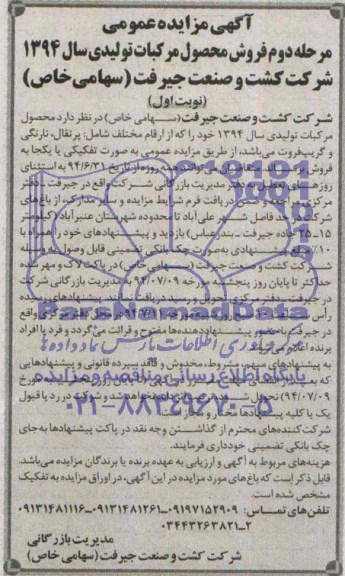 آگهی مزایده عمومی
مرحله دوم فروش محصول مرکبات تولیدی سال ۱۳۹۴
شرکت کشت و صنعت جیرفت (سهامی خاص)
(نوبت اول)
شرکت کشت و صنعت جیرفت (سهامی خاص) در نظر دارد محصول
مرکبات تولیدی سال ۱۳۹۴ خود را که از ارقام مختلف شامل: پرتقال، نارنگی
و گریپ‌فروت می‌باشد، از طریق مزایده عمومی به صورت تفکیکی یا یکجا به
فروش برساند. متقاضیان می‌توانند همه روزه از تاریخ ۹۴/۶/۳۱ به استثنای
روزهای تعطیل به دفتر مدیریت بازرگانی شرکت واقع در جیرفت ـ دفتر
مرکزی مراجعه و ضمن دریافت فرم شرایط مزایده و سایر مدارک، از باغ‌های
شرکت در حد فاصل شهر علی‌آباد تا محدوده شهرستان عنبرآباد (کیلومتر
۱۵ـ۲۵ جاده جیرفت ـ بندرعباس) بازدید و پیشنهادهای خود را همراه با
۱۰٪ مبلغ پیشنهادی به‌صورت چک بانکی تضمینی قابل وصول به وسیله
شرکت کشت و صنعت جیرفت (سهامی خاص) در پاکت لاک و مهر شده
حداکثر تا پایان روز پنجشنبه مورخه ۹۴/۰۷/۰۹ به مدیریت بازرگانی شرکت
در جیرفت ـ دفتر مرکزی تحویل و رسید دریافت نمایند. پیشنهادهای رسیده
رأس ساعت
در جیرفت با حضور پیشنهاددهنده‌ها مفتوح و قرائت می‌گردد و فرد یا افراد
برنده اعلام می‌گردد.
به پیشنهادهای مبهم، مشروط، مخدوش و فاقد سپرده قانونی و پیشنهادهایی
که بعد از
۹۴/۰۷/۰۹) تحویل شود ترتیب اثر داده نخواهد شد و شرکت در رد یا قبول
یک یا کلیه پیشنهادها مختار و مجاز است.
شرکت‌کننده‌های محترم از گذاشتن وجه نقد در پاکت پیشنهادها به‌جای
چک بانکی تضمینی خودداری فرمایند.
هزینه‌های مربوط به آگهی و ارزیابی به عهده برنده یا برندگان مزایده می‌باشد.
قابل ذکر است که باغ‌های مورد مزایده در این آگهی، در اوراق مزایده به تفکیک
مشخص شده است.
تلفن‌های تماس: ۰۹۱۹۷۱۵۲۹۰۹ـ۰۹۱۳۱۴۸۱۲۶۱ـ۰۹۱۳۱۴۸۱۱۱۶
۰۳۴۴۳۲۶۳۸۲۱ـ۲
مدیریت بازرگانی
شرکت کشت و صنعت جیرفت (سهامی خاص)
ParsNamadData
فرآوری اطلاعات پارس نماد داده ها
پایگاه اطلاع رسانی مناقصه و مزایده
۰۲۱-۸۸۳۴۹۶۷۰-۵